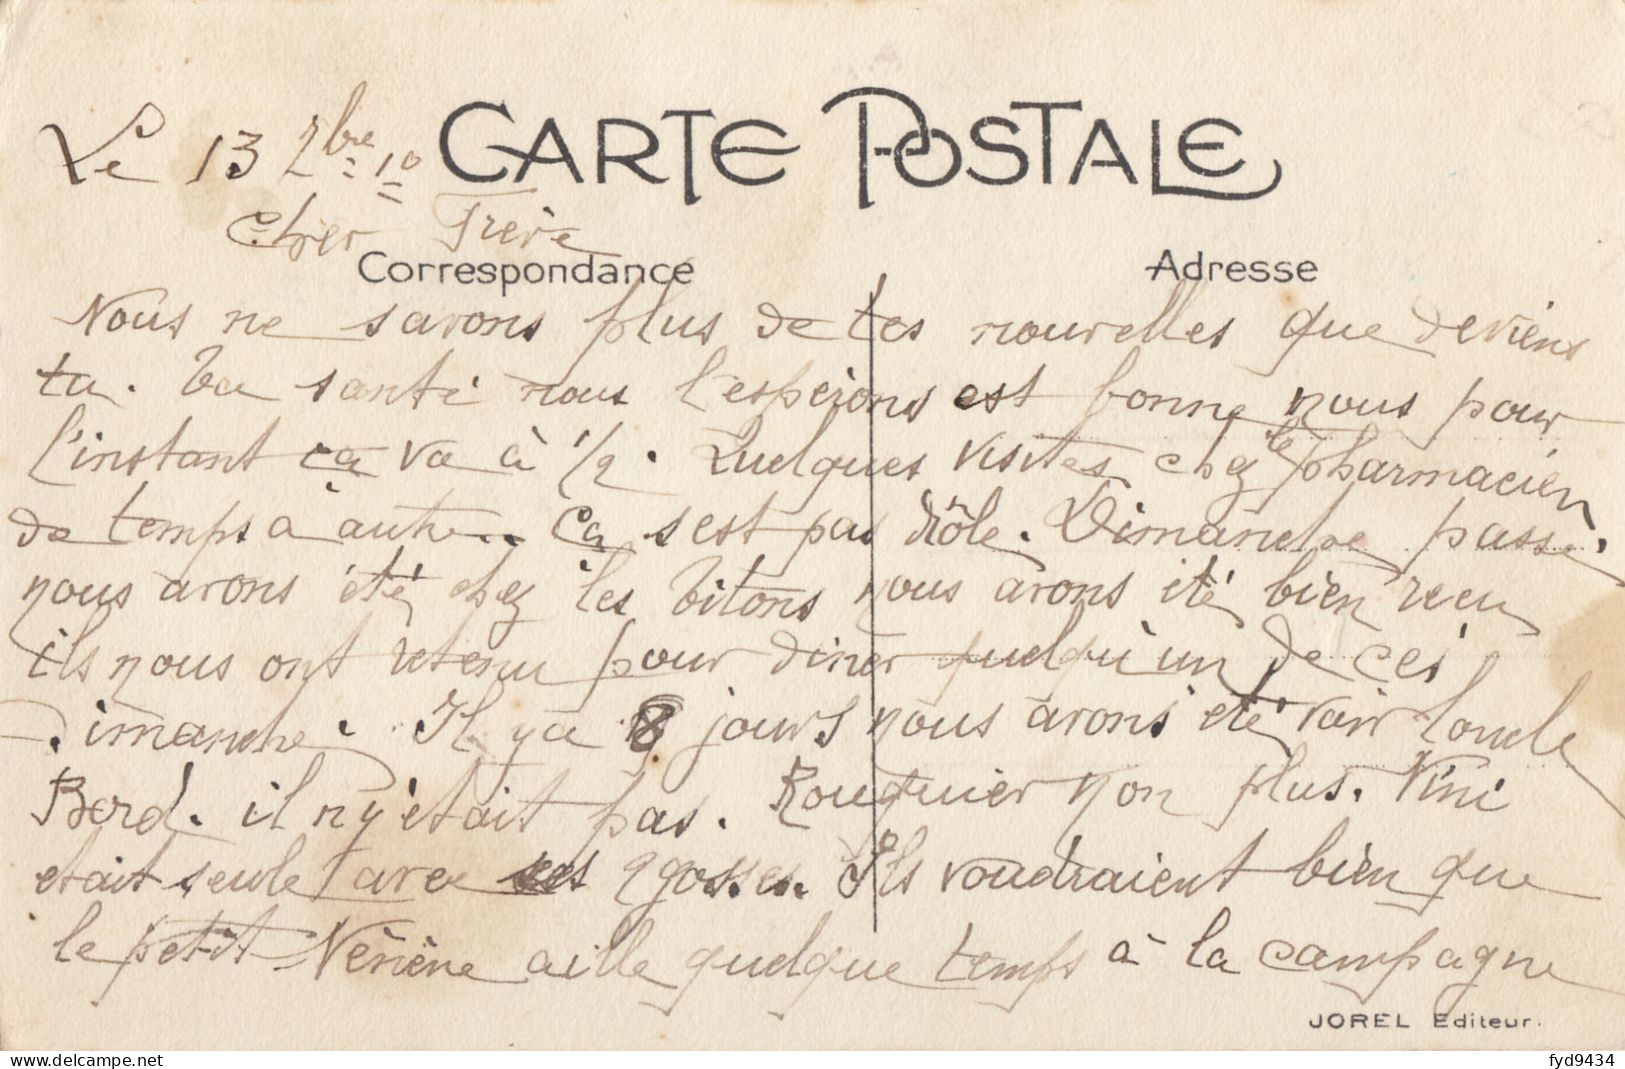 Le 13 7bre 10 CARTE POSTALE
Cher Frère
Correspondance Adresse
Nous ne savons plus de tes nouvelles que deviens
tu. Ta santé nous l'espérons est bonne nous pour
l'instant ça va à 1/2. Quelques visites chez le pharmacien
de temps à autre.. Ça s'est pas drôle. Dimanche passé.
nous avons été chez les Bitons nous avons été bien recu
ils nous ont retenu pour diner quelqu'un de ces
Dimanche. Il y a 8 jours nous avons été voir l'oncle
Bord. il n'y était pas. Rouquier non plus. Nini
etait seule avec ses 2 gosses. Ils voudraient bien que
le petit Nénène aille quelque temps à la campagne
JOREL Editeur.
fyd9434